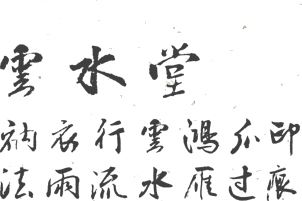 雲水堂
衲衣行雲鴻爪印
法雨流水雁过痕